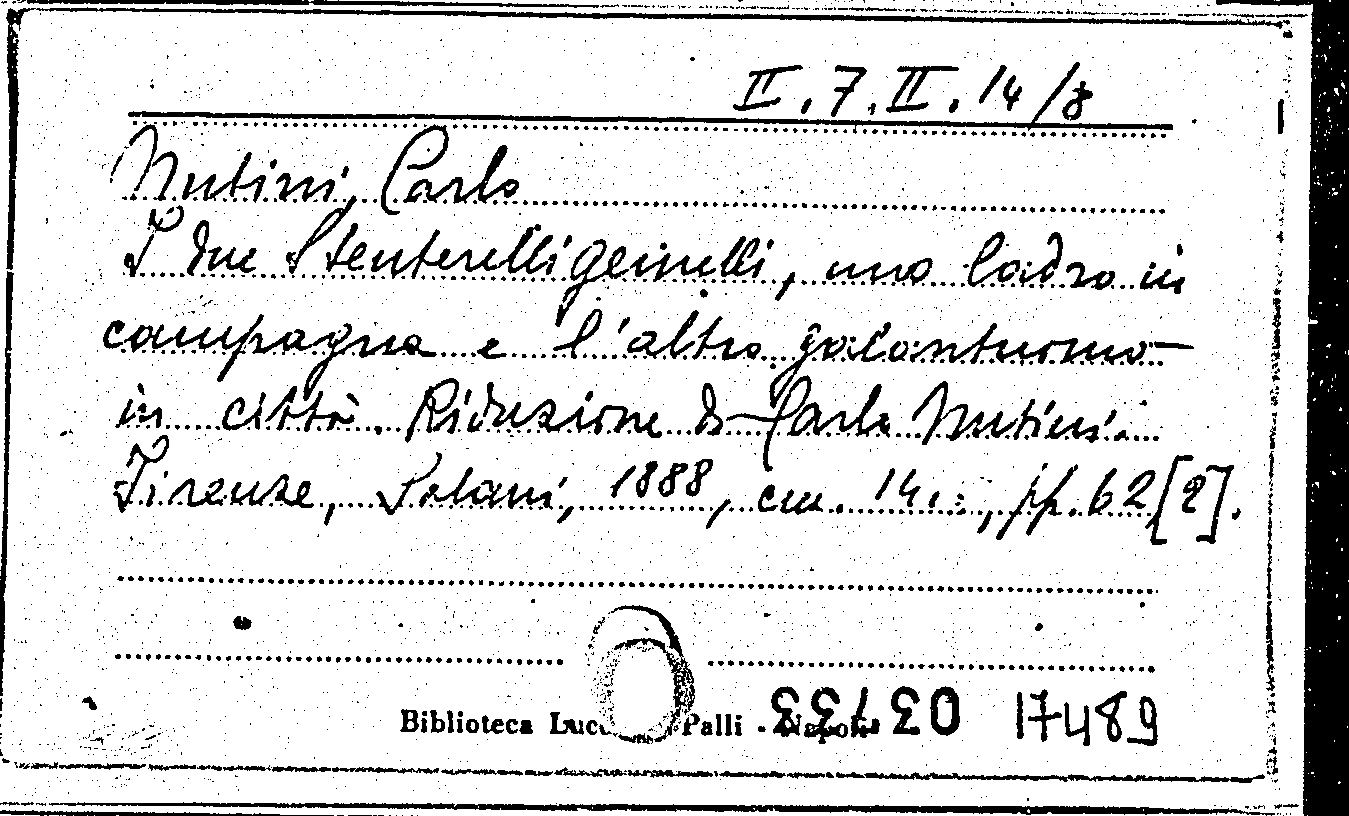 II.7.II.14/8
Nutini, Carlo
I due Stenterelli gemelli, uno ladro in
campagna e l'altro galantuomo
in città. Riduzione di Carlo Nutini.
Firenze, Salani, 1888, cm. 14.., pp. 62 [2].
Biblioteca Palli - Napoli 17489